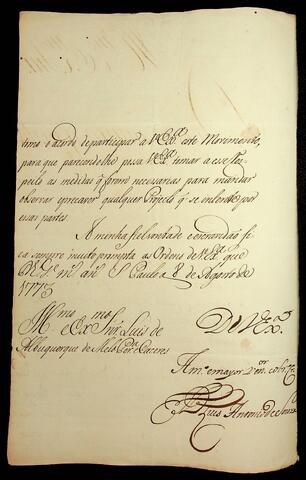 timo e acordo departicipar a V.Ex.ª este Movimento,
para que parecendolhe possa V.Ex.ª tomar a esse Res-
peito as medidas q̃ forem necessarias para mandar
observar, eprecaver qualquer Projecto q̃ se intente por
essas partes.
A minha fiel vontade e veneração fi-
ca sempre muito prompta as Ordens de V.Ex.ª que
D.s g.de m.s an.s S. Paulo a 8 de Agosto de
1773
Ill.mo e Ex.mo Snr. Luis de
Albuquerque de Mello Per.ª e Caceres
De V.Ex.ª
Am.º e mayor V.or
D. Luis Antonio de Souza